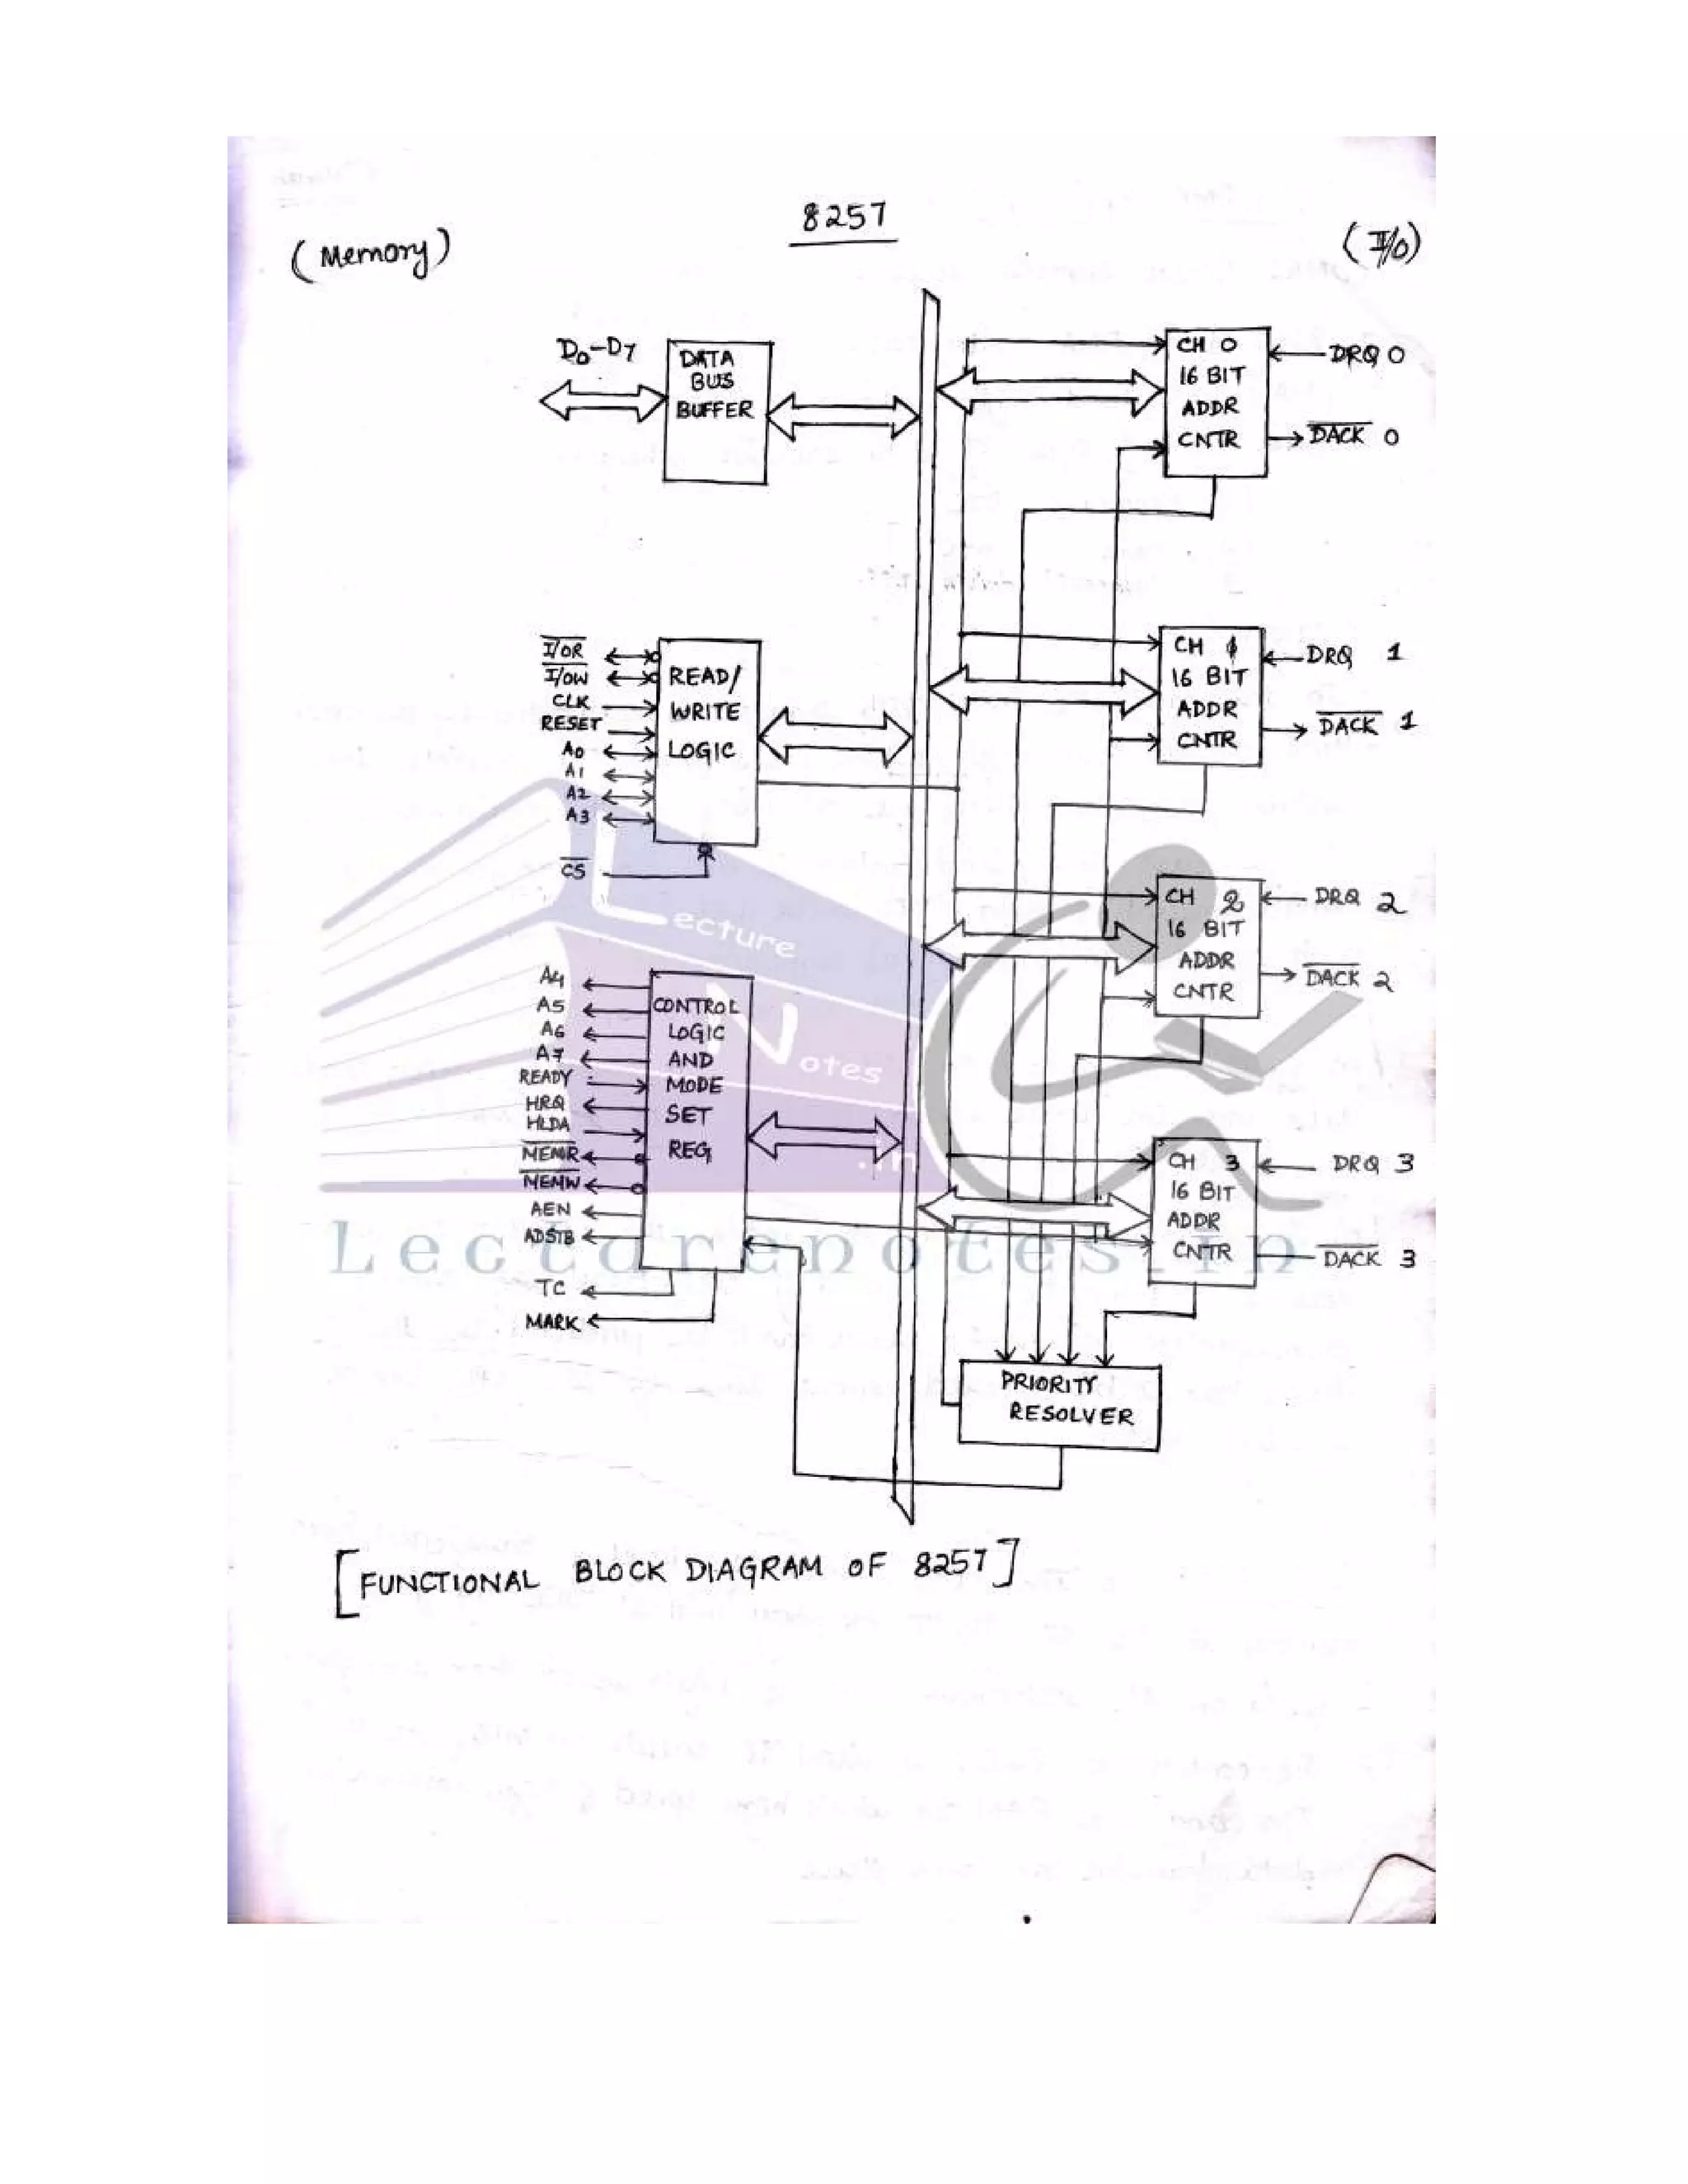 8257
(Memory)
(I/O)
D0-D7
DATA
BUS
BUFFER
CH 0
16 BIT
ADDR
CNTR
DRQ 0
DACK 0
I/OR
I/OW
CLK
RESET
A0
A1
A2
A3
CS
READ/
WRITE
LOGIC
CH 1
16 BIT
ADDR
CNTR
DRQ 1
DACK 1
CH 2
16 BIT
ADDR
CNTR
DRQ 2
DACK 2
A4
A5
A6
A7
READY
HRQ
HLDA
MEMR
MEMW
AEN
ADSTB
TC
MARK
CONTROL
LOGIC
AND
MODE
SET
REG
CH 3
16 BIT
ADDR
CNTR
DRQ 3
DACK 3
PRIORITY
RESOLVER
Lecture
Notes
.in
Lecturenotes.in
[FUNCTIONAL BLOCK DIAGRAM OF 8257]